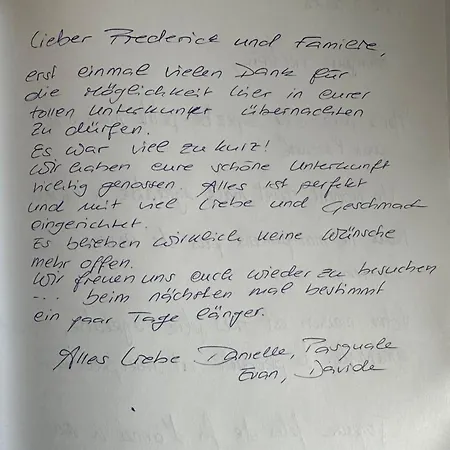 Lieber Frederick und Familie,
erst einmal vielen Dank für
die Möglichkeit hier in eurer
tollen Unterkunft übernachten
zu dürfen.
Es war viel zu kurz!
Wir haben eure schöne Unterkunft
richtig genossen. Alles ist perfekt
und mit viel Liebe und Geschmack
eingerichtet.
Es blieben wirklich keine Wünsche
mehr offen.
Wir freuen uns euch wieder zu besuchen
... beim nächsten mal bestimmt
ein paar Tage länger.
Alles Liebe, Danielle, Pasquale
Evan, Davide